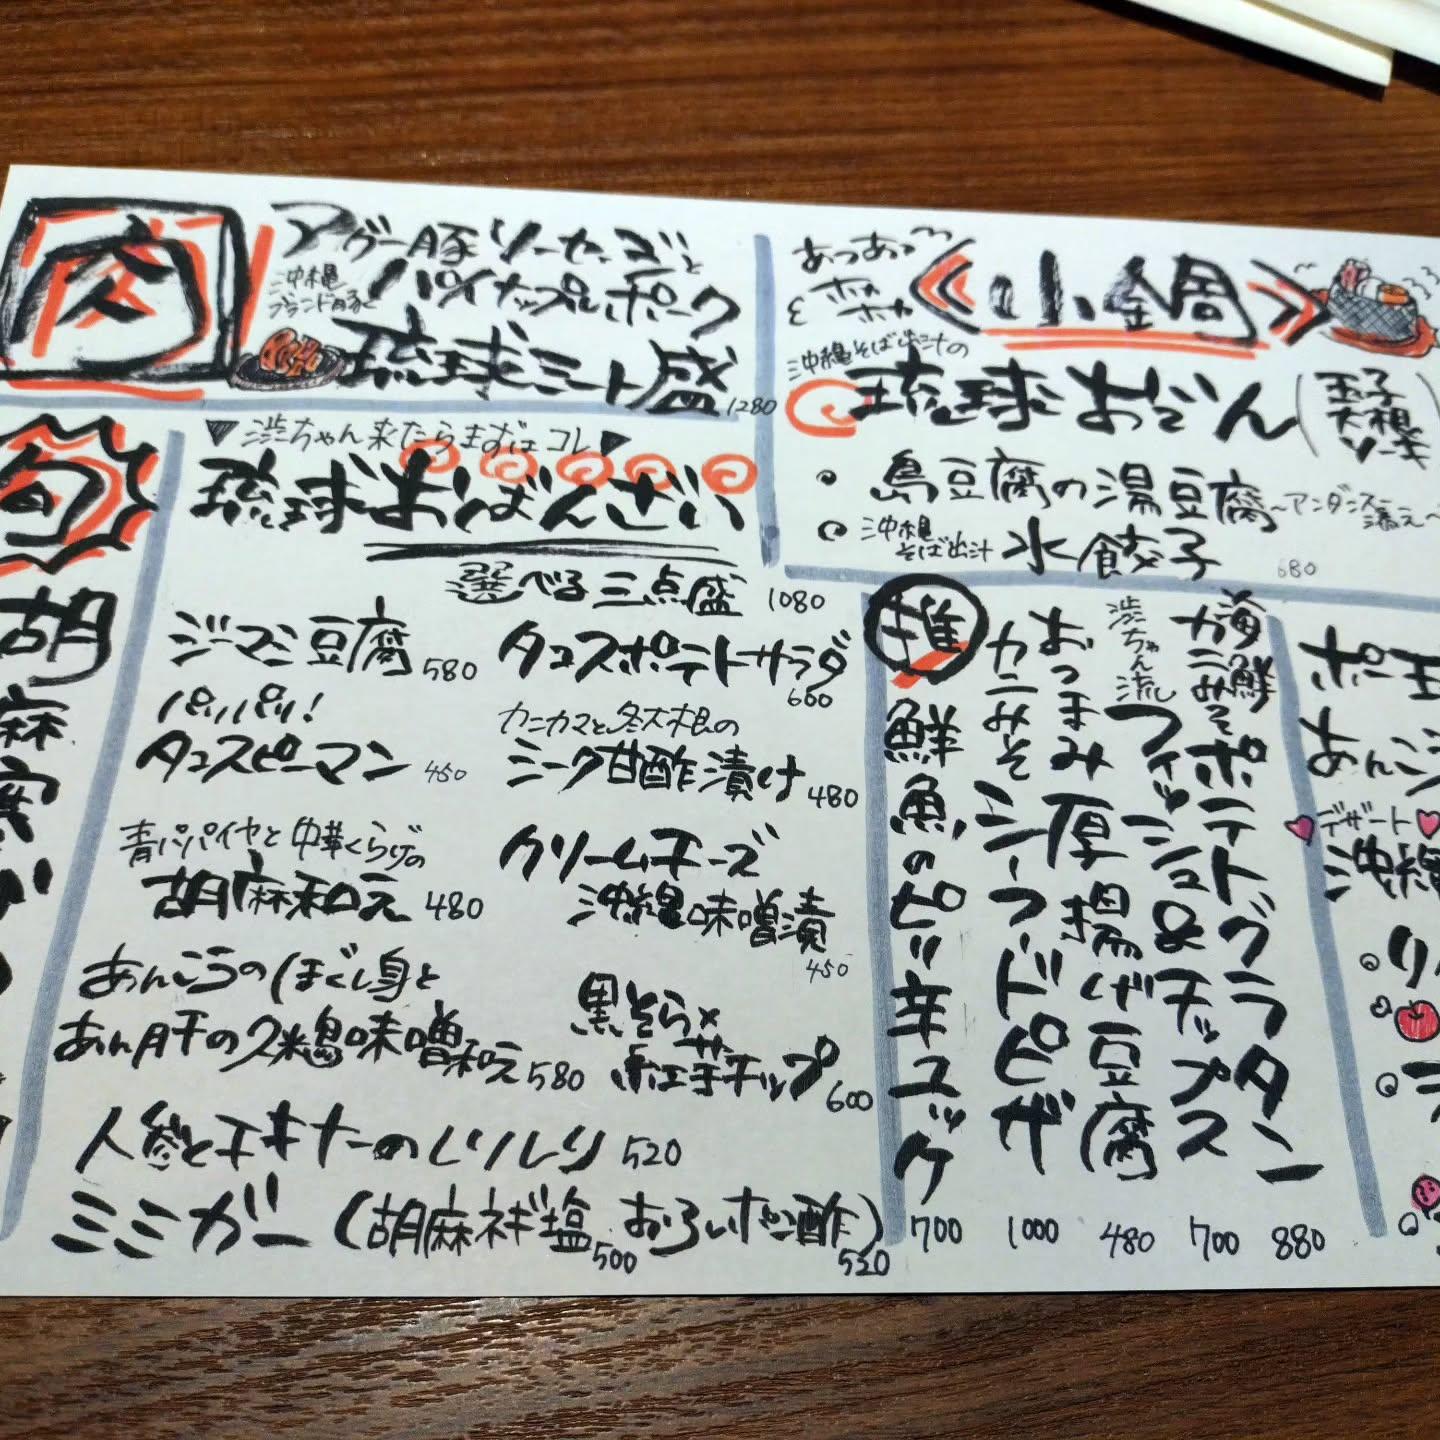 肉
アグー豚ソーセージと
沖縄
ブランド豚
パイナップルポーク
琉球ミート盛
1280
旬
胡
麻
▼渋ちゃん来たらまずはコレ▼
琉球おばんざい
選べる三点盛 1080
ジーマミ豆腐 580
タコスポテトサラダ
600
パリパリ!
タコスピーマン 450
カニカマと冬大根の
ミーク甘酢漬け 480
青パパイヤと中華くらげの
胡麻和え 480
クリームチーズ
沖縄味噌漬
450
あんこうのほぐし身と
あん肝の久米島味噌和え 580
黒そら×
紅芋チップ
600
人参とチキナーのしりしり 520
ミミガー(胡麻ネギ塩 おろしポン酢)
500
520
あつあつ
小鍋
沖縄そば出汁の
琉球おでん
(玉子
大根
ソーキ
島豆腐の湯豆腐 ~アンダンスー添え~
沖縄
そば出汁
水餃子
680
推
海鮮
カニみそポテトグラタン
880
渋ちゃん流
フィッシュ&チップス
700
おつまみ厚揚げ豆腐
480
カニみそシーフードピザ
1000
鮮魚のピリ辛ユッケ
700
ポー玉
あんこ
デザート
沖縄